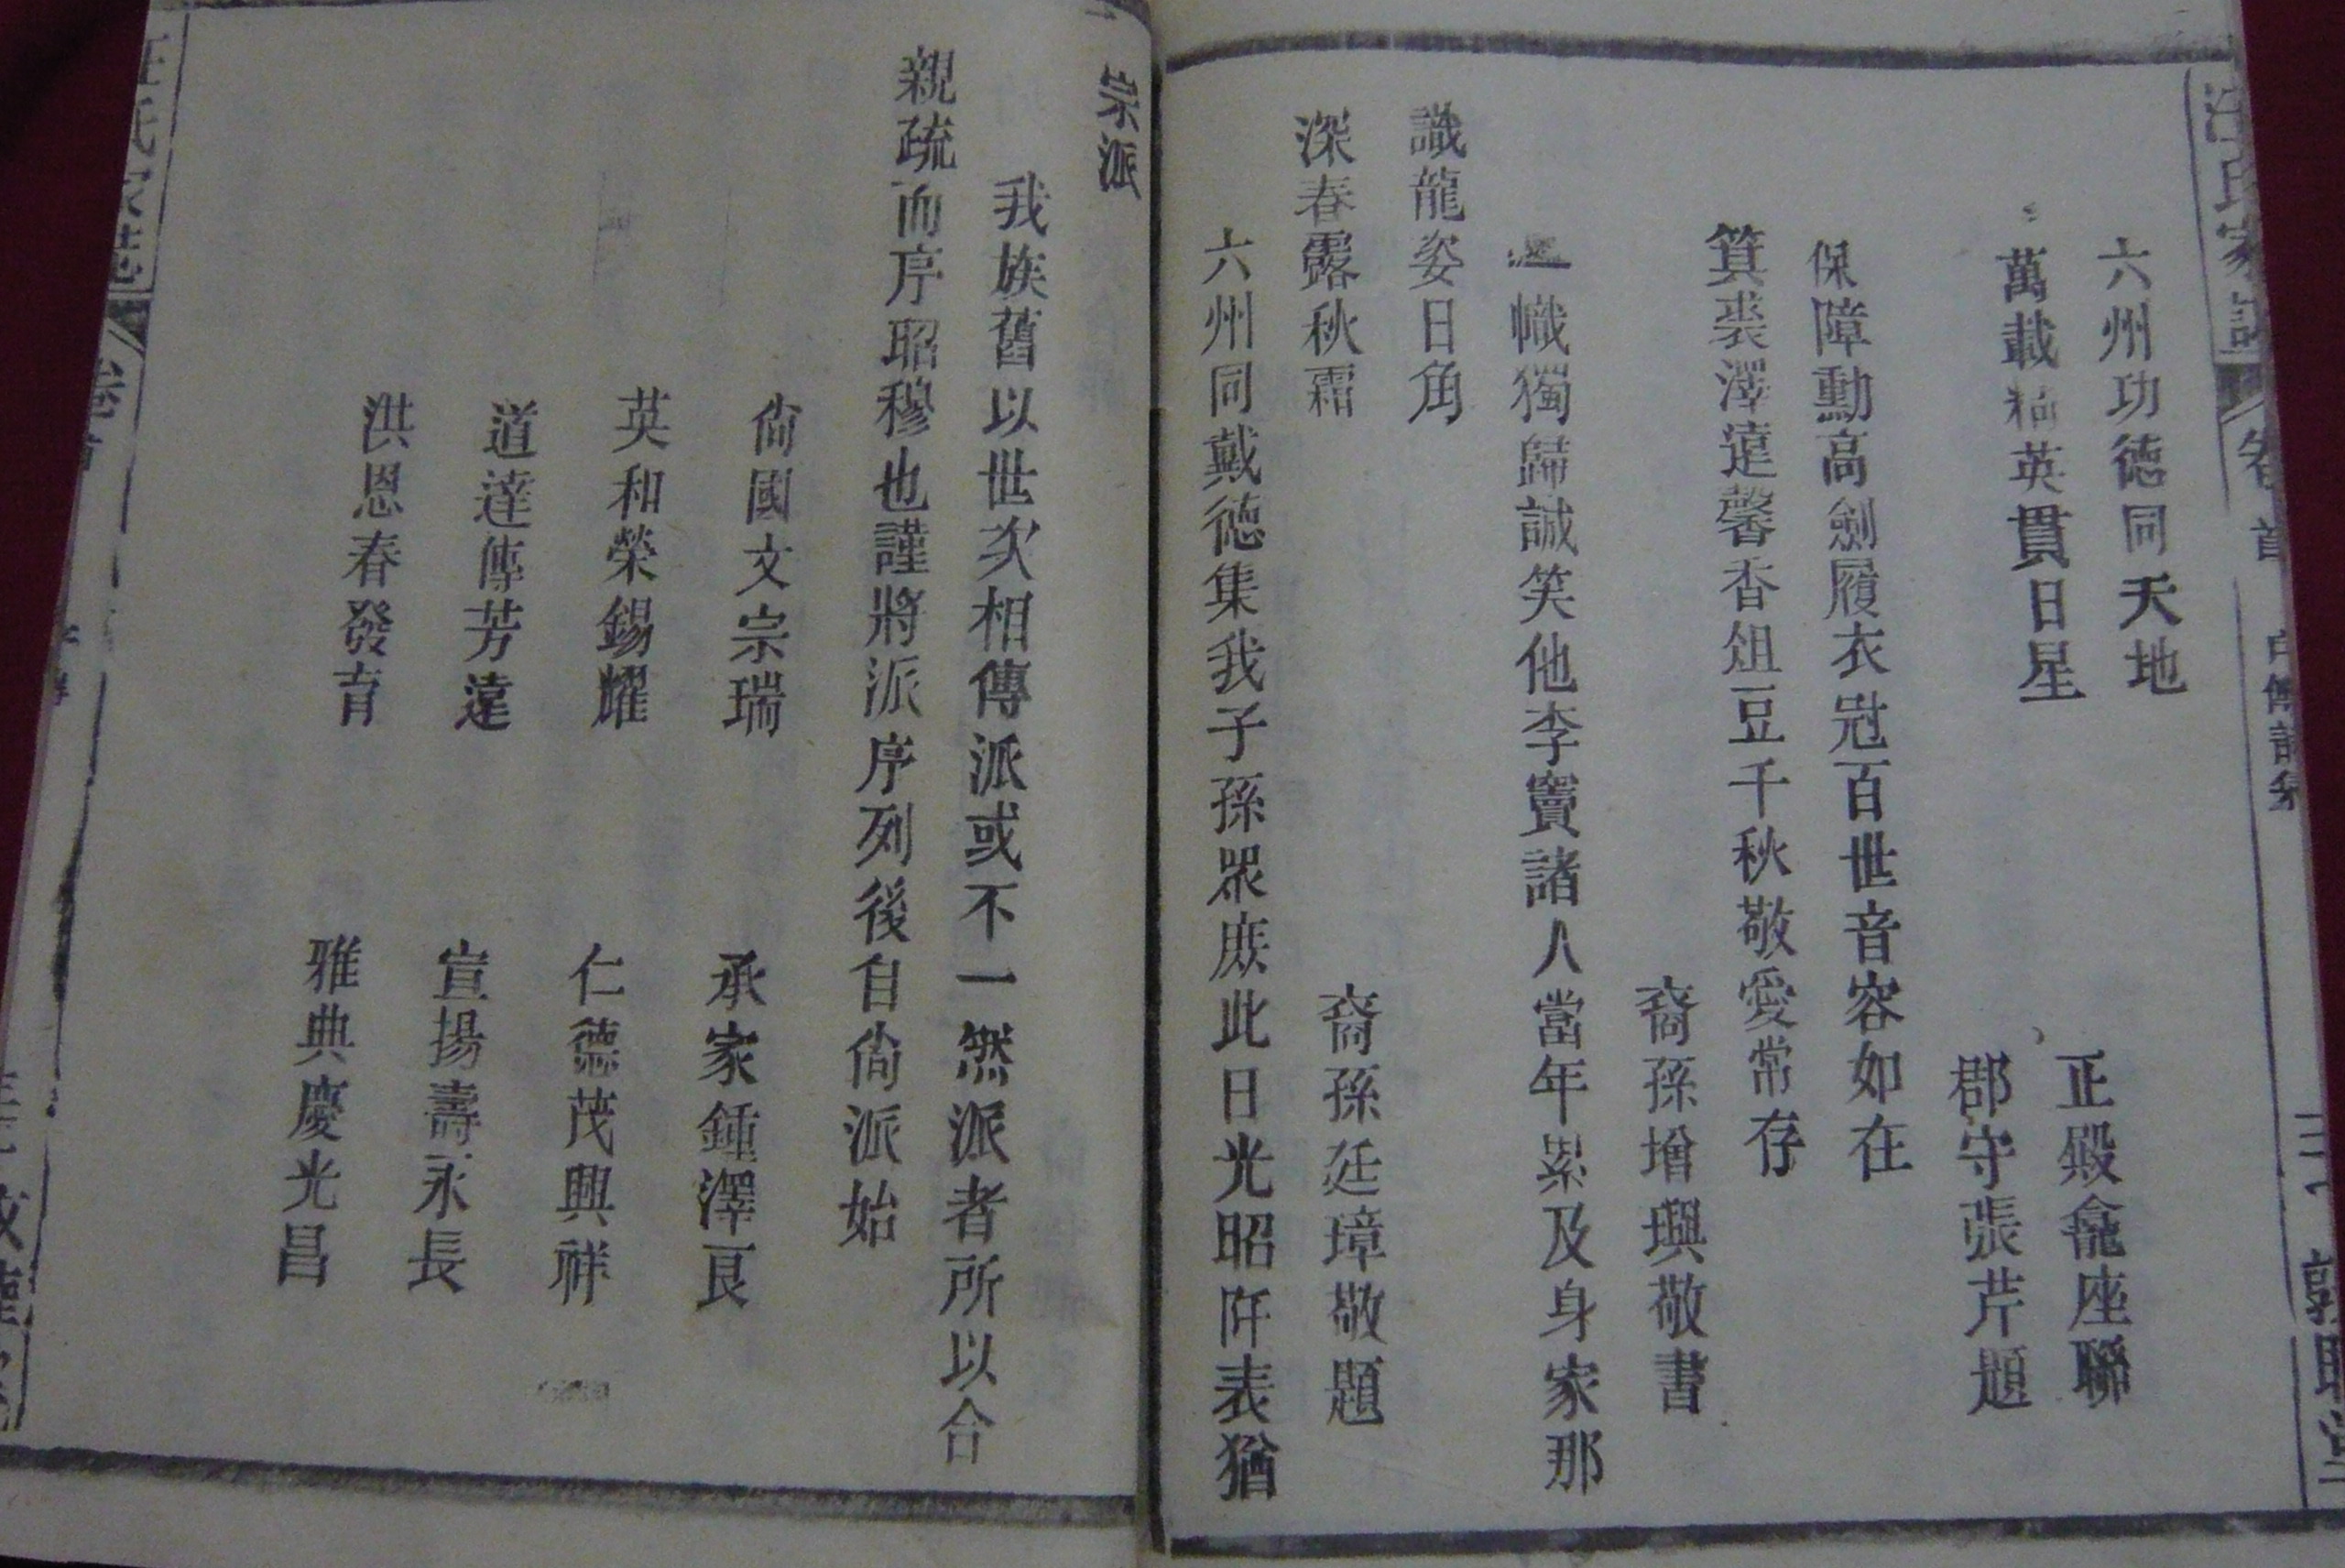 汪氏家譜
卷首
六州功德同天地
正殿龕座聯
萬載精英貫日星
郡守張芹題
保障勳高劍履衣冠百世音容如在
箕裘澤遠馨香俎豆千秋敬愛常存
裔孫增璵敬書
一幟獨歸誠笑他李竇諸人當年累及身家那
識龍姿日角
深春露秋霜
裔孫廷璋敬題
六州同戴德集我子孫眾庶此日光昭阡表猶
宗派
我族舊以世次相傳派或不一然派者所以合
親疏而序昭穆也謹將派序列後自尙派始
尙國文宗瑞
承家鍾澤良
英和榮錫耀
仁德茂興祥
道達傳芳遠
宣揚壽永長
洪恩春發育
雅典慶光昌
汪氏家譜
卷首